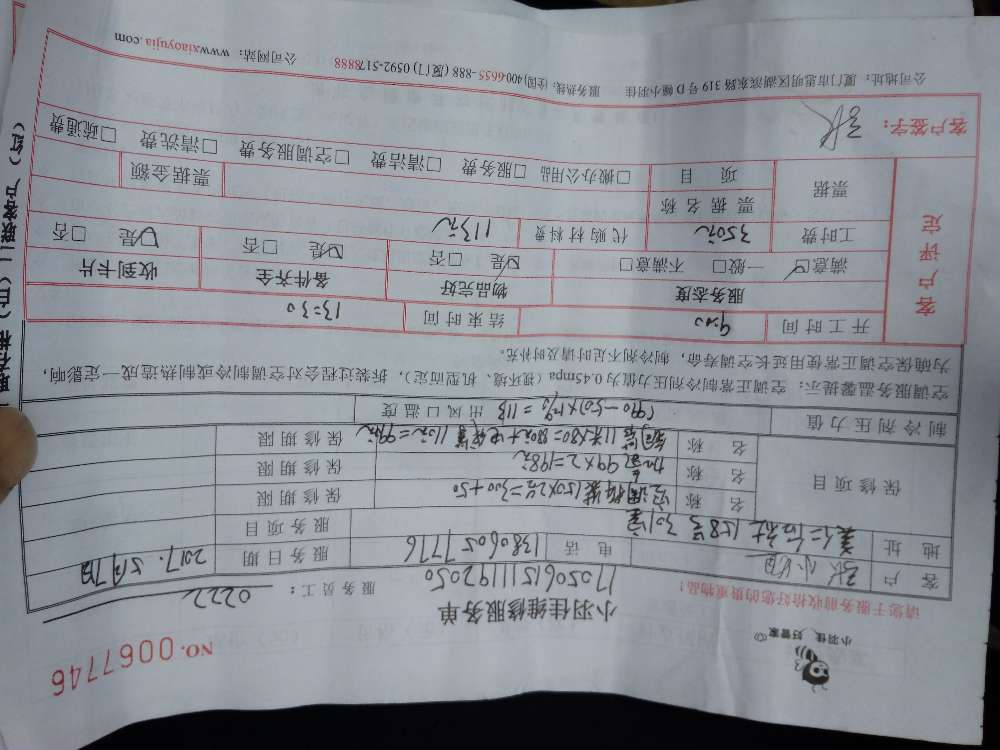 小羽佳 好管家
NO. 0067746
小羽佳维修服务单
请您于服务前收拾好您的贵重物品!
17050615111192050
服务员工: 0222
客 户 小姐 服务日期 2017.5月7日
地 址 美仁后社158号301室 电 话 13806057776 服务项目
保修项目 名 称 空调拆装150×2台=300+50 保修期限
名 称 加氟99×2=198元 保修期限
名 称 铜管11米×80=880元+电缆等110元=990元 保修期限
制冷剂压力值 出风口温度
(990-50)×12%=113
空调服务温馨提示:空调正常制冷剂压力值为0.45mpa(视环境、机型而定),拆装过程会对空调制冷或制热造成一定影响,
为确保空调正常使用延长空调寿命,制冷剂不足时请及时补充。
客户评定
开工时间 9:00 结束时间 13:30
服务态度 物品完好 备件齐全 收到卡片
满意☑ 一般□ 不满意□ ☑是 □否 ☑是 □否 ☑是 □否
工时费 350元 代购材料费 113元
票据 票据名称 票据金额
项 目 □搬办公用品 □服务费 □清洁费 □空调服务费 □清洗费 □疏通费
客户签字:
公司地址:厦门市思明区湖滨东路319号D幢小羽佳 服务热线:(全国)400-6655-888 (厦门) 0592-5178888 公司网站:www.xiaoyujia.com
(白) 二联客户(红)